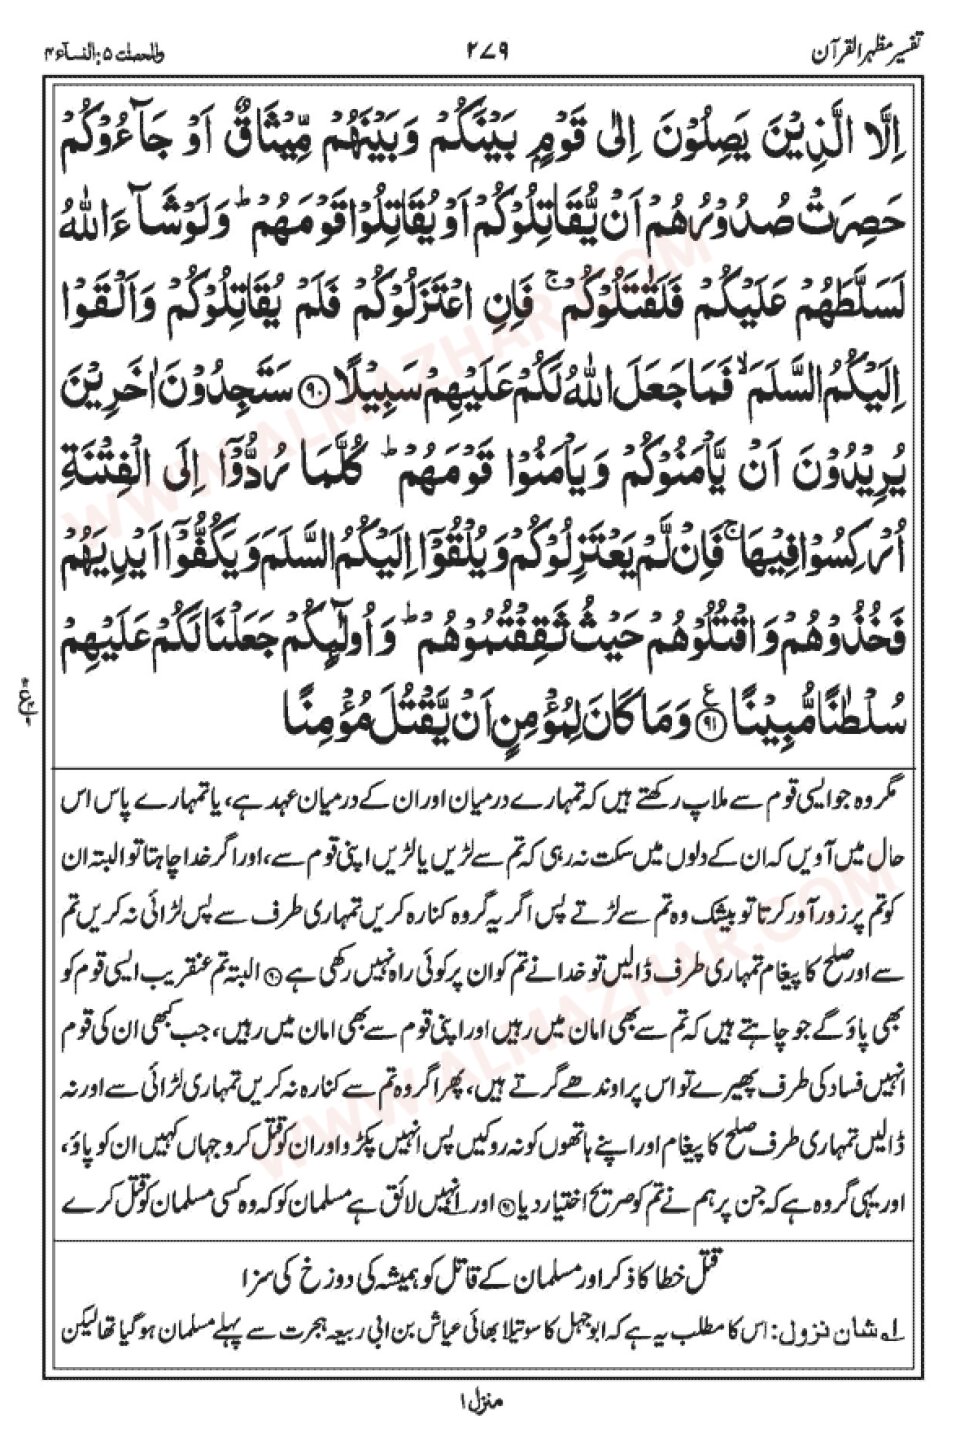 تفسیر مظہر القرآن
۲۷۹
والمحصنٰت ۵: النسآء ۴
اِلَّا الَّذِيْنَ يَصِلُوْنَ اِلٰى قَوْمٍۭ بَيْنَكُمْ وَبَيْنَهُمْ مِّيْثَاقٌ اَوْ جَآءُوْكُمْ
حَصِرَتْ صُدُوْرُهُمْ اَنْ يُّقَاتِلُوْكُمْ اَوْ يُقَاتِلُوْا قَوْمَهُمْ ؕ وَلَوْ شَآءَ اللّٰهُ
لَسَلَّطَهُمْ عَلَيْكُمْ فَلَقٰتَلُوْكُمْ ۚ فَاِنِ اعْتَزَلُوْكُمْ فَلَمْ يُقَاتِلُوْكُمْ وَاَلْقَوْا
اِلَيْكُمُ السَّلَمَ ۙ فَمَا جَعَلَ اللّٰهُ لَكُمْ عَلَيْهِمْ سَبِيْلًا ۝۹۰ سَتَجِدُوْنَ اٰخَرِيْنَ
يُرِيْدُوْنَ اَنْ يَّاْمَنُوْكُمْ وَيَاْمَنُوْا قَوْمَهُمْ ؕ كُلَّمَا رُدُّوْٓا اِلَى الْفِتْنَةِ
اُرْكِسُوْا فِيْهَا ۚ فَاِنْ لَّمْ يَعْتَزِلُوْكُمْ وَيُلْقُوْٓا اِلَيْكُمُ السَّلَمَ وَيَكُفُّوْٓا اَيْدِيَهُمْ
فَخُذُوْهُمْ وَاقْتُلُوْهُمْ حَيْثُ ثَقِفْتُمُوْهُمْ ؕ وَاُولٰٓئِكُمْ جَعَلْنَا لَكُمْ عَلَيْهِمْ
سُلْطٰنًا مُّبِيْنًا ۝۹۱ ع وَمَا كَانَ لِمُؤْمِنٍ اَنْ يَّقْتُلَ مُؤْمِنًا
مگر وہ جو ایسی قوم سے ملاپ رکھتے ہیں کہ تمہارے درمیان اور ان کے درمیان عہد ہے، یا تمہارے پاس اس
حال میں آویں کہ ان کے دلوں میں سکت نہ رہی کہ تم سے لڑیں یا لڑیں اپنی قوم سے، اور اگر خدا چاہتا تو البتہ ان
کو تم پر زور آور کرتا تو بیشک وہ تم سے لڑتے پس اگر یہ گروہ کنارہ کریں تمہاری طرف سے پس لڑائی نہ کریں تم
سے اور صلح کا پیغام تمہاری طرف ڈالیں تو خدا نے تم کو ان پر کوئی راہ نہیں رکھی ہے ۹۰ البتہ تم عنقریب ایسی قوم کو
بھی پاؤ گے جو چاہتے ہیں کہ تم سے بھی امان میں رہیں اور اپنی قوم سے بھی امان میں رہیں، جب کبھی ان کی قوم
انہیں فساد کی طرف پھیرے تو اس پر اوندھے گرتے ہیں، پھر اگر وہ تم سے کنارہ نہ کریں تمہاری لڑائی سے اور نہ
ڈالیں تمہاری طرف صلح کا پیغام اور اپنے ہاتھوں کو نہ روکیں پس انہیں پکڑو اور ان کو قتل کرو جہاں کہیں ان کو پاؤ،
اور یہی گروہ ہے کہ جن پر ہم نے تم کو صریح اختیار دیا ۹۱ اور ا؎ نہیں لائق ہے مسلمان کو کہ وہ کسی مسلمان کو قتل کرے
قتل خطا کا ذکر اور مسلمان کے قاتل کو ہمیشہ کی دوزخ کی سزا
ا؎ شان نزول: اس کا مطلب یہ ہے کہ ابو جہل کا سوتیلا بھائی عیاش بن ابی ربیعہ ہجرت سے پہلے مسلمان ہو گیا تھا لیکن
منزل ۱
WWW.ALMAZHAR.COM
WWW.ALMAZHAR.COM